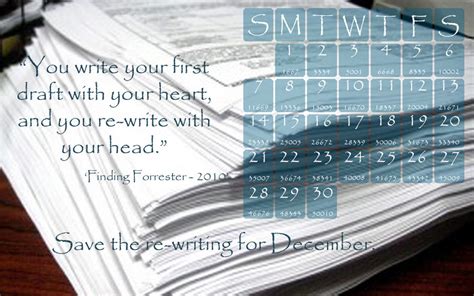 “You write your first
draft with your heart,
and you re-write with
your head.”
‘Finding Forrester - 2010’
S M T W T F S
1 2 3 4 5 6
1667 3334 5001 6668 8335 10002
7 8 9 10 11 12 13
11669 13336 15003 16670 18337 20004 21671
14 15 16 17 18 19 20
23338 25005 26672 28339 30006 31673 33340
21 22 23 24 25 26 27
35007 36674 38341 40008 41675 43342 45009
28 29 30
46676 48343 50010
Save the re-writing for December.